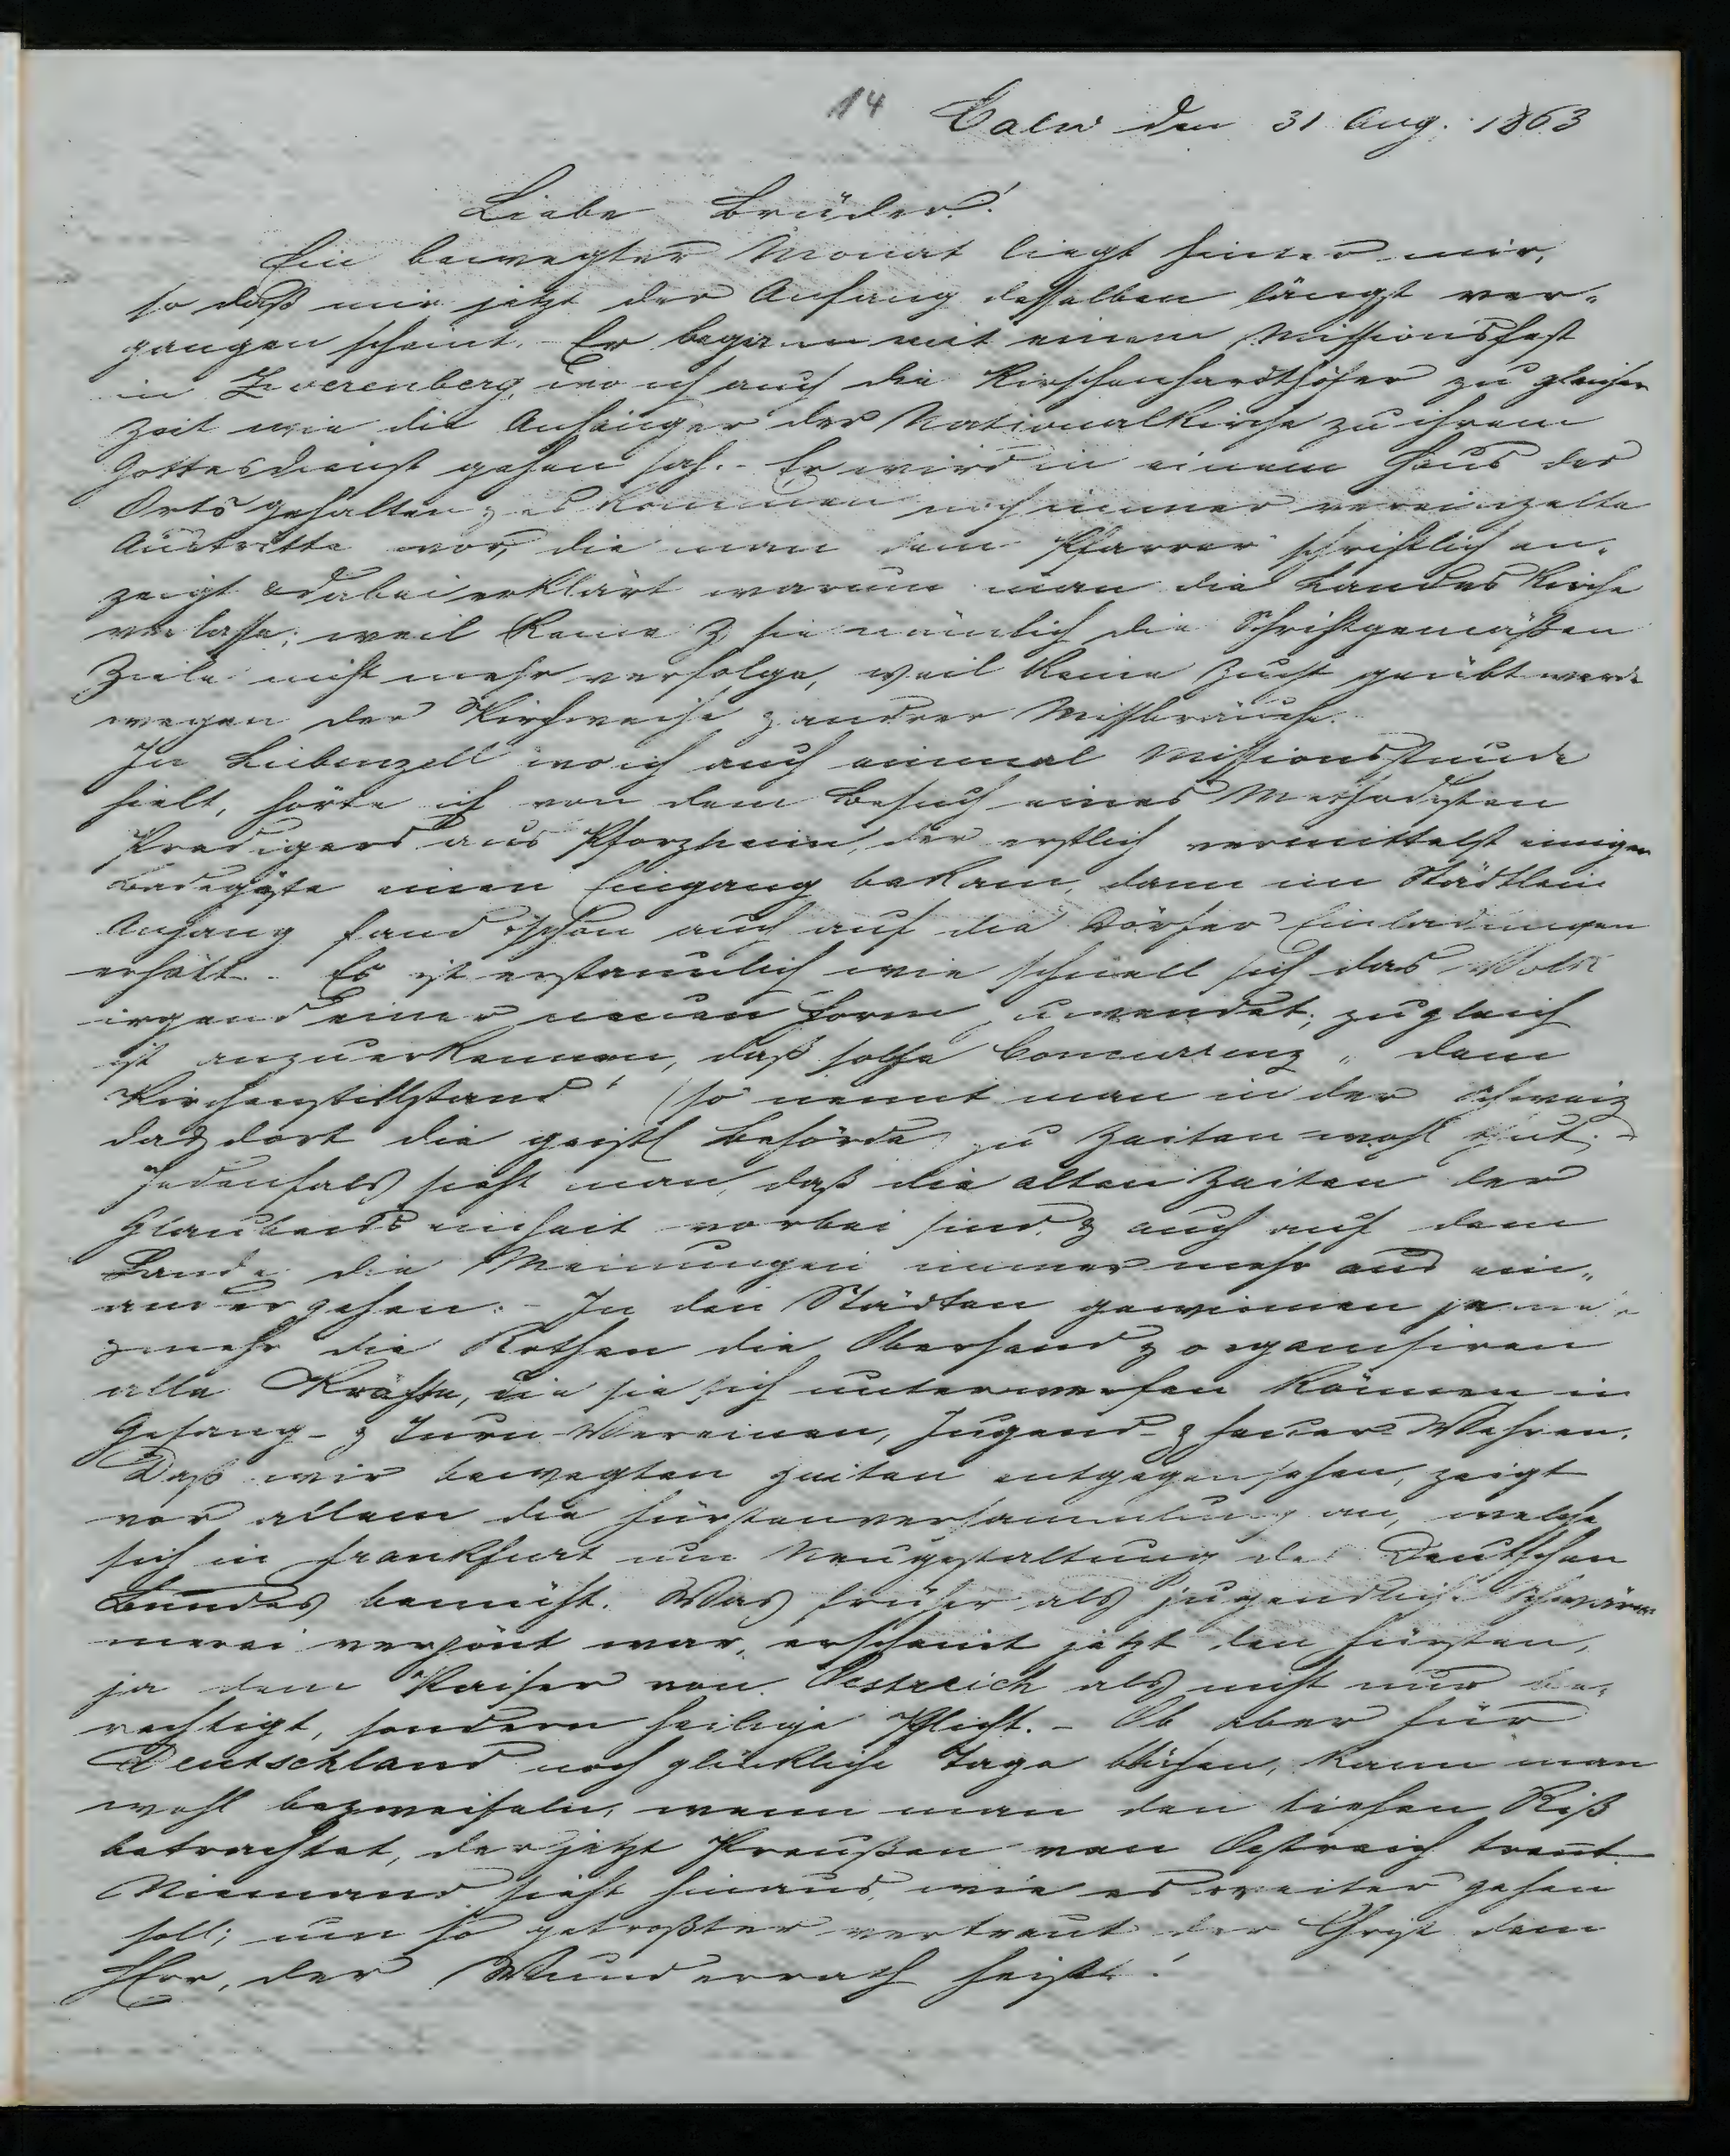 14 Calw den 31 Aug. 1863
Liebe Brüder!
Ein bewegter Monat liegt hinter mir,
so daß mir jetzt der Anfang desselben längst ver-
gangen scheint. Er begann mit einem Missionsfest
in Zwerenberg, wo ich auch die Kirschenhardthöfer zu gleicher
Zeit wie die Anhänger der Nationalkirche zu ihrem
Gottesdienst gehen sah. - Er wird in einem Haus des
Orts gehalten & es kommen noch immer vereinzelte
Austritte vor, die man dem Pfarrer schriftlich an-
zeigt & dabei erklärt warum man die Landeskirche
verlasse: weil keine & sie nämlich die Schriftgemäßen
Ziele nicht mehr verfolge, weil keine Zucht geübt werde
wegen der Kirchweihe & andrer Missbräuche.
In Liebenzell wo ich auch einmal Missionsstunde
hielt, hörte ich von dem Besuch eines Methodisten
Predigers aus Pforzheim, der erstlich vermittelst einiger
Badegäste einen Eingang bekam, dann im Städtlein
Anhang fand & schon auch auf die Dörfer Einladungen
erhält. Es ist erstaunlich wie schnell sich das Volk
irgend einer neuen Form zuwendet; zugleich
ist anzuerkennen, daß solche Concurrenz „dem
Kirchenstillstand" (so nennt man in der Schweiz
das dort die geistl Behörde zu Zeiten wohl thut. -
Jedenfals sieht man, daß die alten Zeiten der
Glaubenseinheit vorbei sind, & auch auf dem
Lande die Meinungen immer mehr aus ein-
ander gehen. - In den Städten gewinnen je mehr
& mehr die Rothen die Oberhand & organisiren
alle Kräfte, die sie sich unterwerfen können in
Gesang- & Turn-Vereinen, Jugend- & Feuer-Wehren.
Daß wir bewegten Zeiten entgegensehen, zeigt
vor allem die Fürstenversammlung an, welche
sich in Frankfurt um Neugestaltung des Deutschen
Bundes bemüht. Was früher als jugendliche Schwär-
merei verpönt war, erscheint jetzt den Fürsten,
ja dem Kaiser von Oestreich als nicht nur be-
rechtigt, sondern heilige Pflicht. - Ob aber für
Deutschland noch glückliche Tage blühen, kann man
wohl bezweifeln, wenn man den tiefen Riß
betrachtet, der jetzt Preußen von Oestreich trennt.
Niemand sieht hinaus, wie es weiter gehen
soll; um so getroßter vertraut der Christ dem
HErr, der Wunderrath heißt!